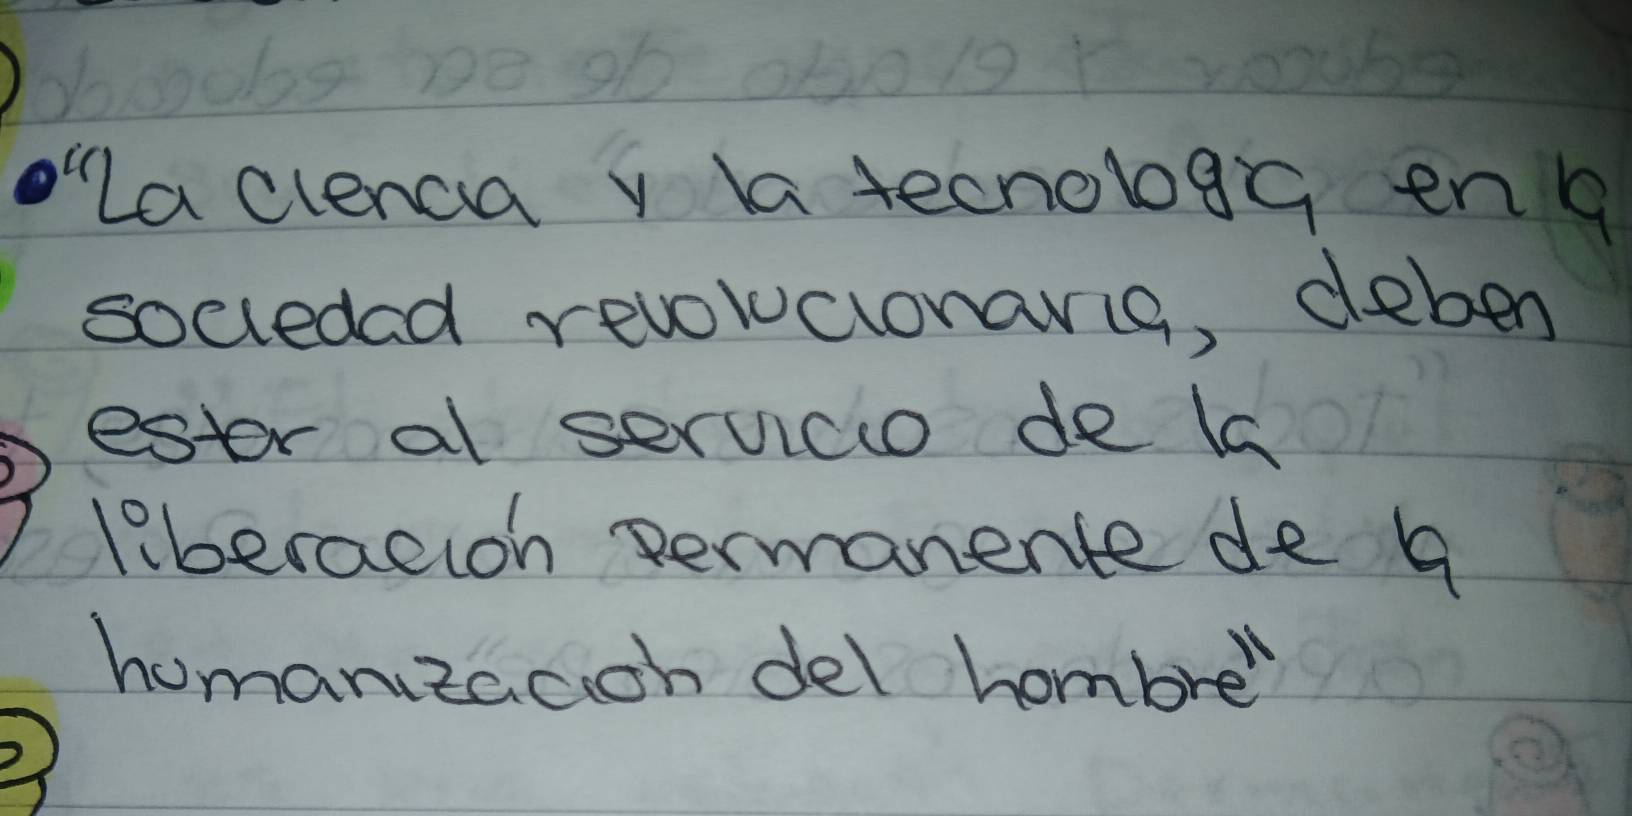 "La ciencia y la tecnologia en la
sociedad revolucionaria, deben
estar al servicio de la
liberación permanente de la
humanización del hombre"